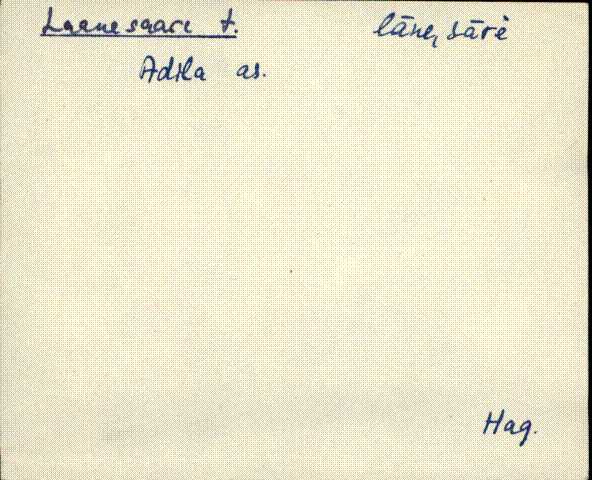 Laanesaare t. lāne, sāre
Adila as.
Hag.